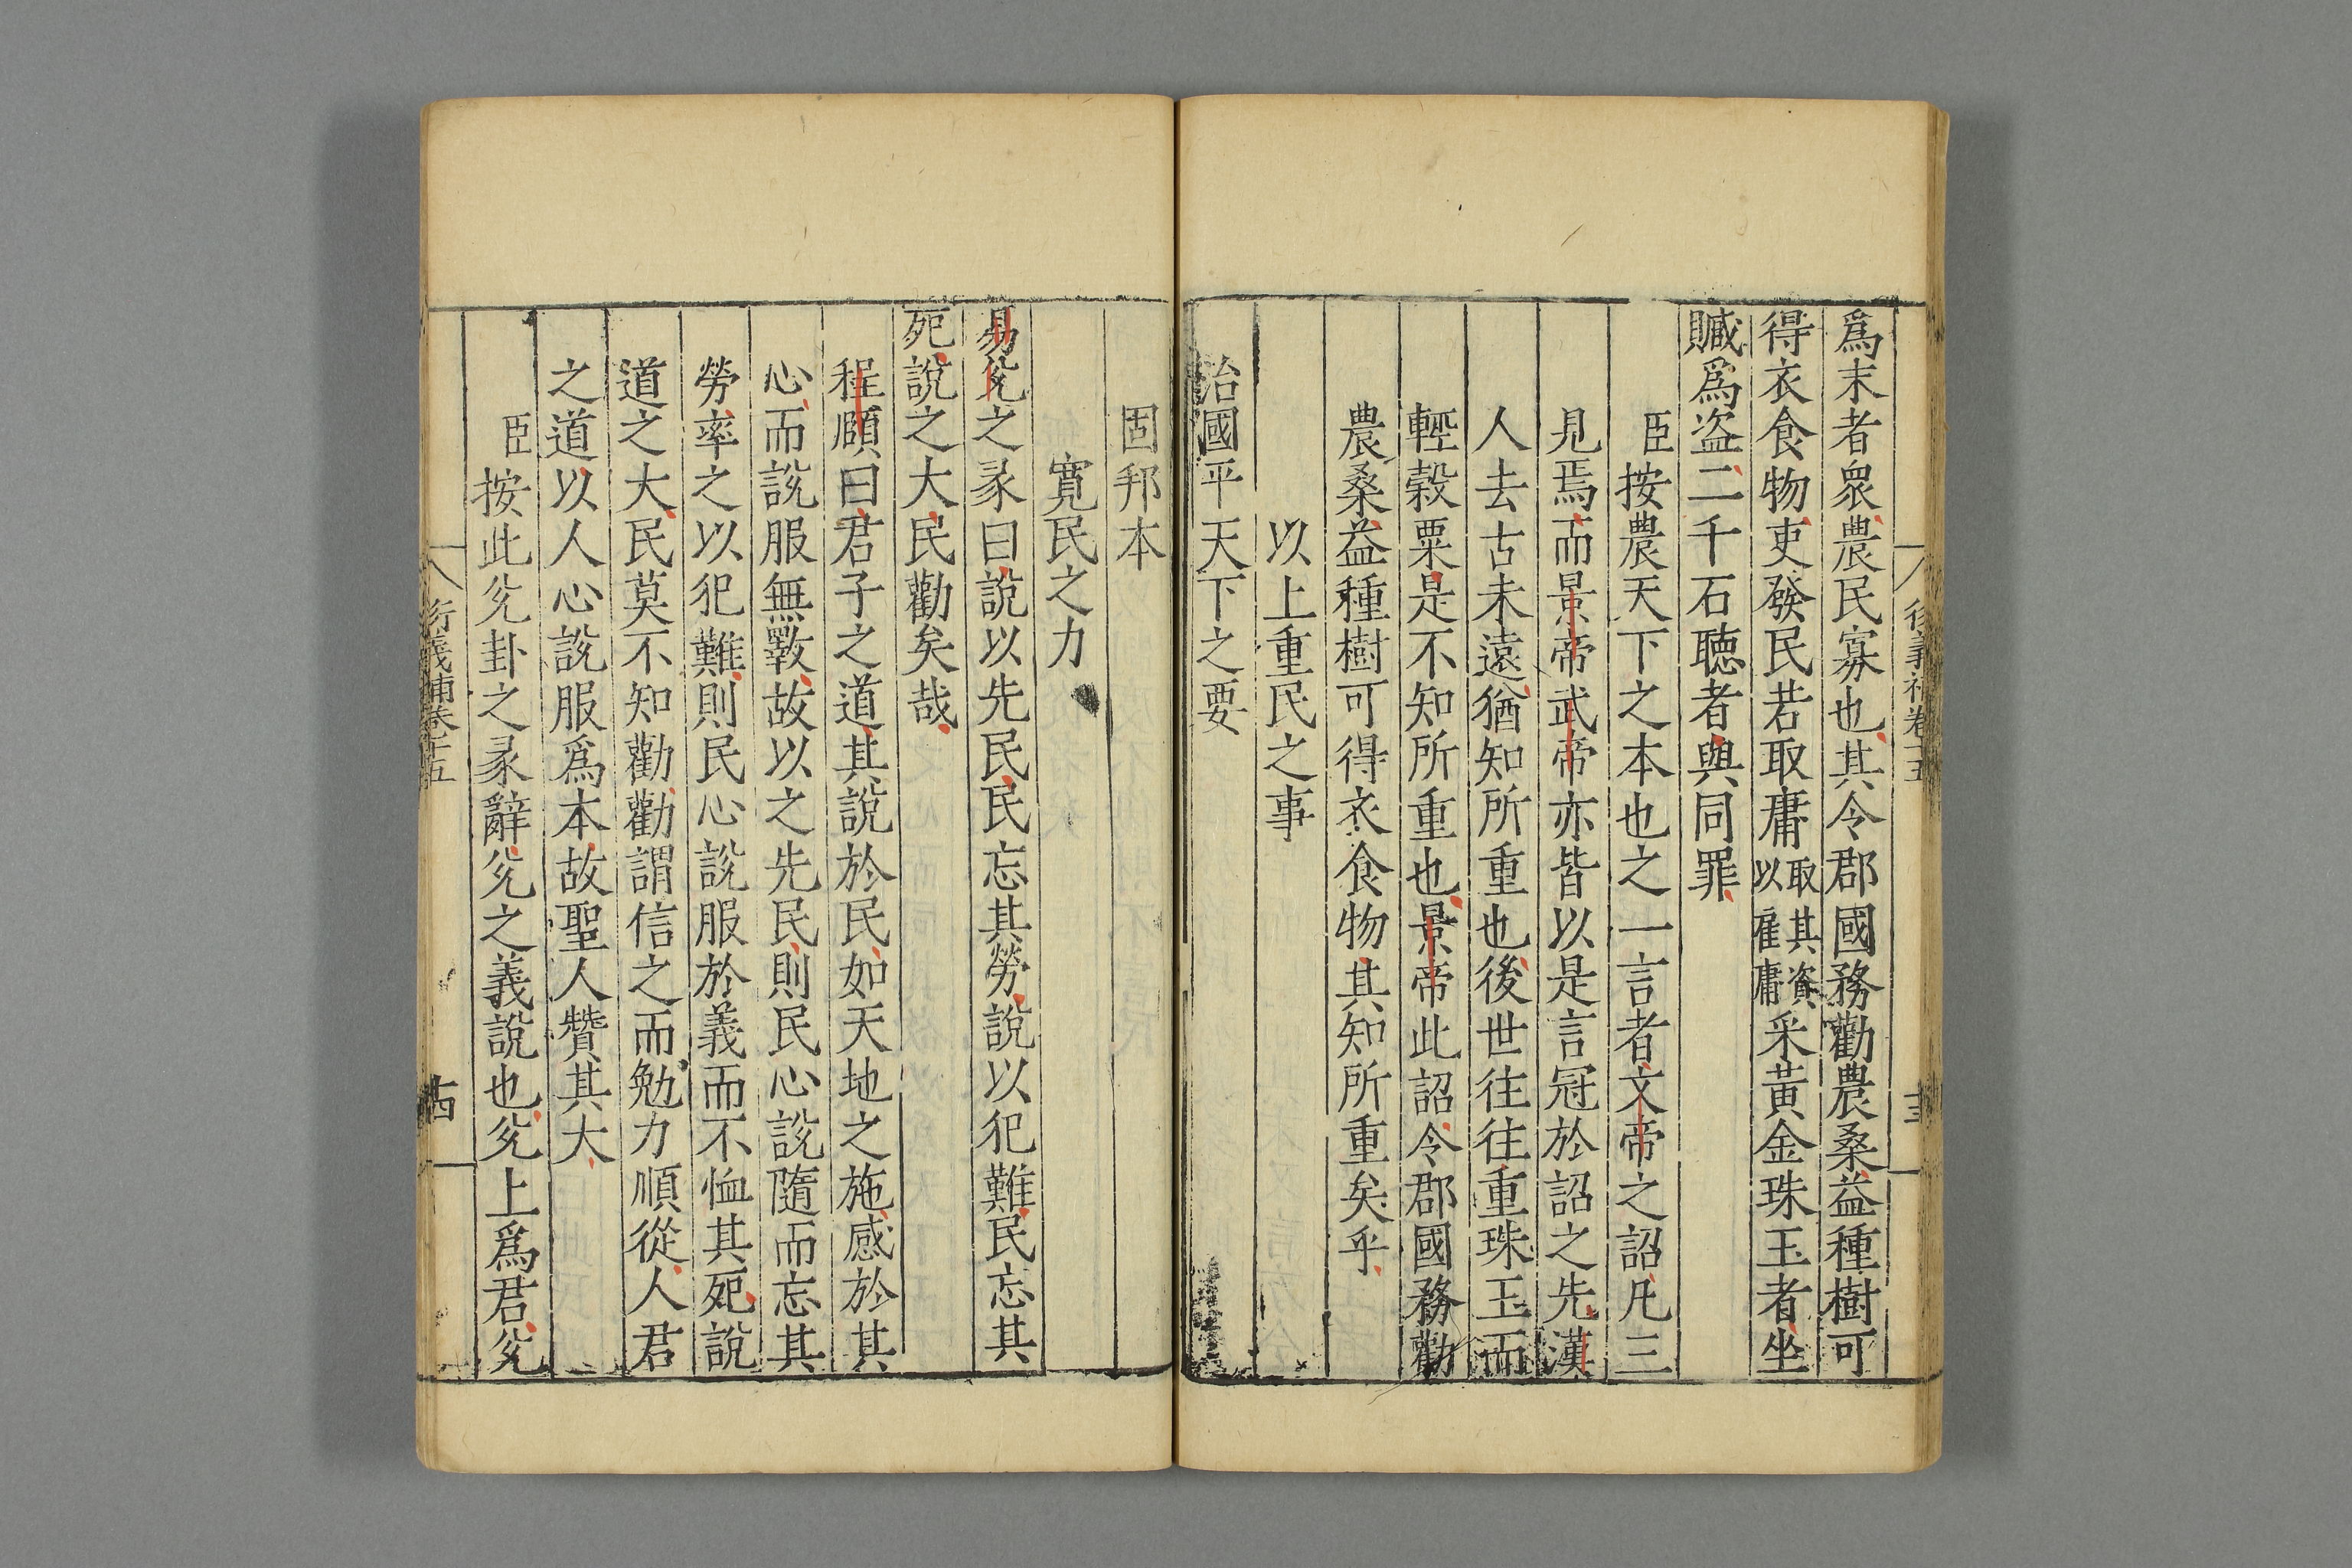 爲末者衆農民寡也其令郡國務勸農桑益種樹可
得衣食物吏發民若取庸取其資以雇庸采黃金珠玉者坐
贓爲盗二千石聽者與同罪
臣按農天下之本也之一言者文帝之詔凡三
見焉而景帝武帝亦皆以是言冠於詔之先漢
人去古未遠猶知所重也後世往往重珠玉而
輕穀粟是不知所重也景帝此詔令郡國務勸
農桑益種樹可得衣食物其知所重矣乎
以上重民之事
治國平天下之要
固邦本
寬民之力
易兊之彖曰說以先民民忘其勞說以犯難民忘其
死說之大民勸矣哉
程頤曰君子之道其說於民如天地之施感於其
心而說服無斁故以之先民則民心說隨而忘其
勞率之以犯難則民心說服於義而不恤其死說
道之大民莫不知勸勸謂信之而勉力順從人君
之道以人心說服爲本故聖人贊其大
臣按此兊卦之彖辭兊之義說也兊上爲君兊
衍義補卷十五